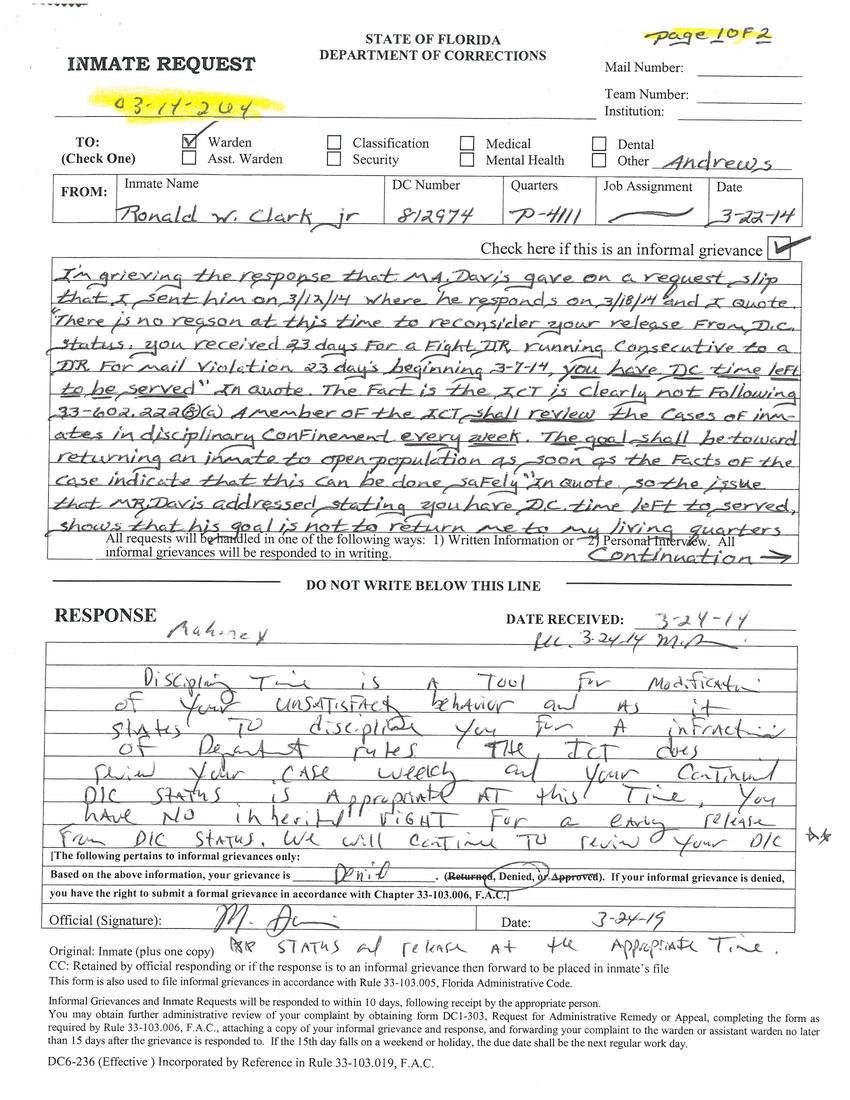 page 1 OF 2
STATE OF FLORIDA
DEPARTMENT OF CORRECTIONS
INMATE REQUEST
Mail Number:
Team Number:
Institution:
03-14-264
TO:
(Check One)
Warden Classification Medical Dental
Asst. Warden Security Mental Health Other Andrews
FROM:
Inmate Name DC Number Quarters Job Assignment Date
Ronald W. Clark jr 812974 P-4111 3-22-14
Check here if this is an informal grievance
I'm grieving the response that MR, Davis gave on a request slip
that I sent him on 3/12/14 where he responds on 3/18/14 and I quote
"There is no reason at this time to reconsider your release From D.C.
status. you received 23 days For a Fight DR running Consecutive to a
DR For mail violation 23 day's beginning 3-7-14, you have DC time left
to be served" In quote. The Fact is the ICT is Clearly not Following
33-602.222(8)(a) A member OF the ICT shall review the Cases of inm-
ates in disciplinary ConFinement every week. The goal shall be toward
returning an inmate to open population as soon as the Facts OF the
case indicate that this Can be done safely" In quote. so the issue
that MR, Davis addressed stating you have D.C. time left to served,
shows that his goal is not to return me to my living quarters
All requests will be handled in one of the following ways: 1) Written Information or 2) Personal Interview. All
informal grievances will be responded to in writing.
Continuation →
DO NOT WRITE BELOW THIS LINE
RESPONSE
DATE RECEIVED: 3-24-14
3-24-14
Time is A Tool For
of Your behavior and AS it
STATES TO discipline You For A infraction
OF rules The ICT does
review Your CASE weekly and Your Continued
D/C STATUS is Appropriate AT this Time, You
have NO RIGHT For a early release
From D/C STATUS. We will Continue TO review Your D/C **
[The following pertains to informal grievances only:
Based on the above information, your grievance is Denied. (Returned, Denied, or Approved). If your informal grievance is denied,
you have the right to submit a formal grievance in accordance with Chapter 33-103.006, F.A.C.]
Official (Signature): Date: 3-24-14
STATUS and release At the Appropriate Time.
Original: Inmate (plus one copy)
CC: Retained by official responding or if the response is to an informal grievance then forward to be placed in inmate's file
This form is also used to file informal grievances in accordance with Rule 33-103.005, Florida Administrative Code.
Informal Grievances and Inmate Requests will be responded to within 10 days, following receipt by the appropriate person.
You may obtain further administrative review of your complaint by obtaining form DC1-303, Request for Administrative Remedy or Appeal, completing the form as
required by Rule 33-103.006, F.A.C., attaching a copy of your informal grievance and response, and forwarding your complaint to the warden or assistant warden no later
than 15 days after the grievance is responded to. If the 15th day falls on a weekend or holiday, the due date shall be the next regular work day.
DC6-236 (Effective ) Incorporated by Reference in Rule 33-103.019, F.A.C.